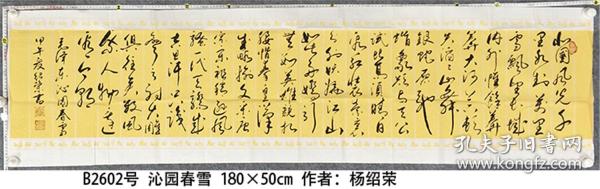 北国风光千
里冰封万里
雪飘望长城
内外惟馀莽
莽大河上下顿
失滔滔山舞
银蛇原驰
蜡象欲与天公
试比高须晴日
看红装素裹
分外妖娆江山
如此多娇引
无数英雄竞折
腰惜秦皇汉
武略输文采唐
宗宋祖稍逊风
骚一代天骄成
吉思汗只识
弯弓射大雕
俱往矣数风
流人物还
看今朝
毛泽东沁园春雪
甲午夏绍荣书
B2602号 沁园春雪 180×50cm 作者：杨绍荣
孔夫子旧书网